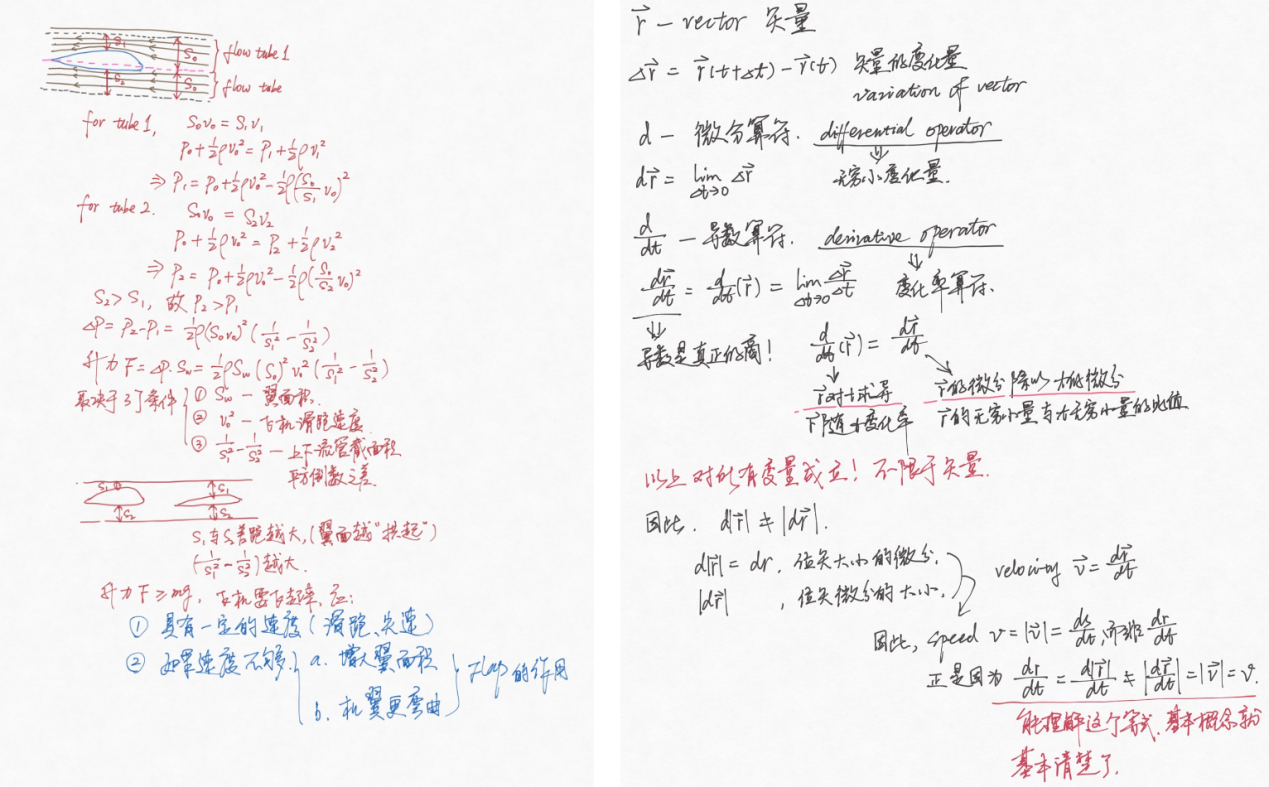 S₁
S₀
flow tube 1
S₂
S₀
flow tube
for tube 1, S₀v₀ = S₁v₁
P₀+½ρv₀² = P₁+½ρv₁²
⇒ P₁ = P₀+½ρv₀²-½ρ(S₀/S₁ v₀)²
for tube 2. S₀v₀ = S₂v₂
P₀+½ρv₀² = P₂+½ρv₂²
⇒ P₂ = P₀+½ρv₀²-½ρ(S₀/S₂ v₀)²
S₂>S₁, 故 P₂>P₁
ΔP = P₂-P₁ = ½ρ(S₀v₀)²(1/S₁² - 1/S₂²)
升力 F = ΔP·Sw = ½ρSw(S₀)²v₀²(1/S₁² - 1/S₂²)
取决于3个条件 ① Sw — 翼面积.
② v₀² — 飞机滑跑速度
③ 1/S₁² - 1/S₂² — 上下流管截面积
平方倒数之差.
S₁ S₁
S₂ S₂
S₁与S₂差距越大,(翼面越"拱起")
(1/S₁² - 1/S₂²)越大.
升力 F ≥ mg, 飞机要飞起来, 应:
① 具有一定的速度(滑跑、失速)
② 如果速度不够. a. 增大翼面积
b. 机翼更弯曲
flap的作用
r⃗ — vector 矢量
Δr⃗ = r⃗(t+Δt)-r⃗(t) 矢量的变化量
variation of vector
d — 微分算符. differential operator
⇓
dr⃗ = lim Δt→0 Δr⃗ 无穷小变化量.
d/dt — 导数算符. derivative operator
⇓
dr⃗/dt = d/dt(r⃗) = lim Δt→0 Δr⃗/Δt 变化率算符.
⇓
导数是真正的商! d/dt(r⃗) = dr⃗/dt
r⃗对t求导 r⃗的微分除以t的微分
r⃗随t变化率 r⃗的无穷小量与t无穷小量的比值
以上对所有变量成立! 不限于矢量.
因此. d|r⃗| ≠ |dr⃗|.
d|r⃗| = dr, 位矢大小的微分.
|dr⃗| , 位矢微分的大小.
velocity v⃗ = dr⃗/dt
因此, speed v = |v⃗| = ds/dt, 而非 dr/dt
正是因为 dr/dt = d|r⃗|/dt ≠ |dr⃗/dt| = |v⃗| = v.
能理解这个等式. 基本概念就
基本清楚了.